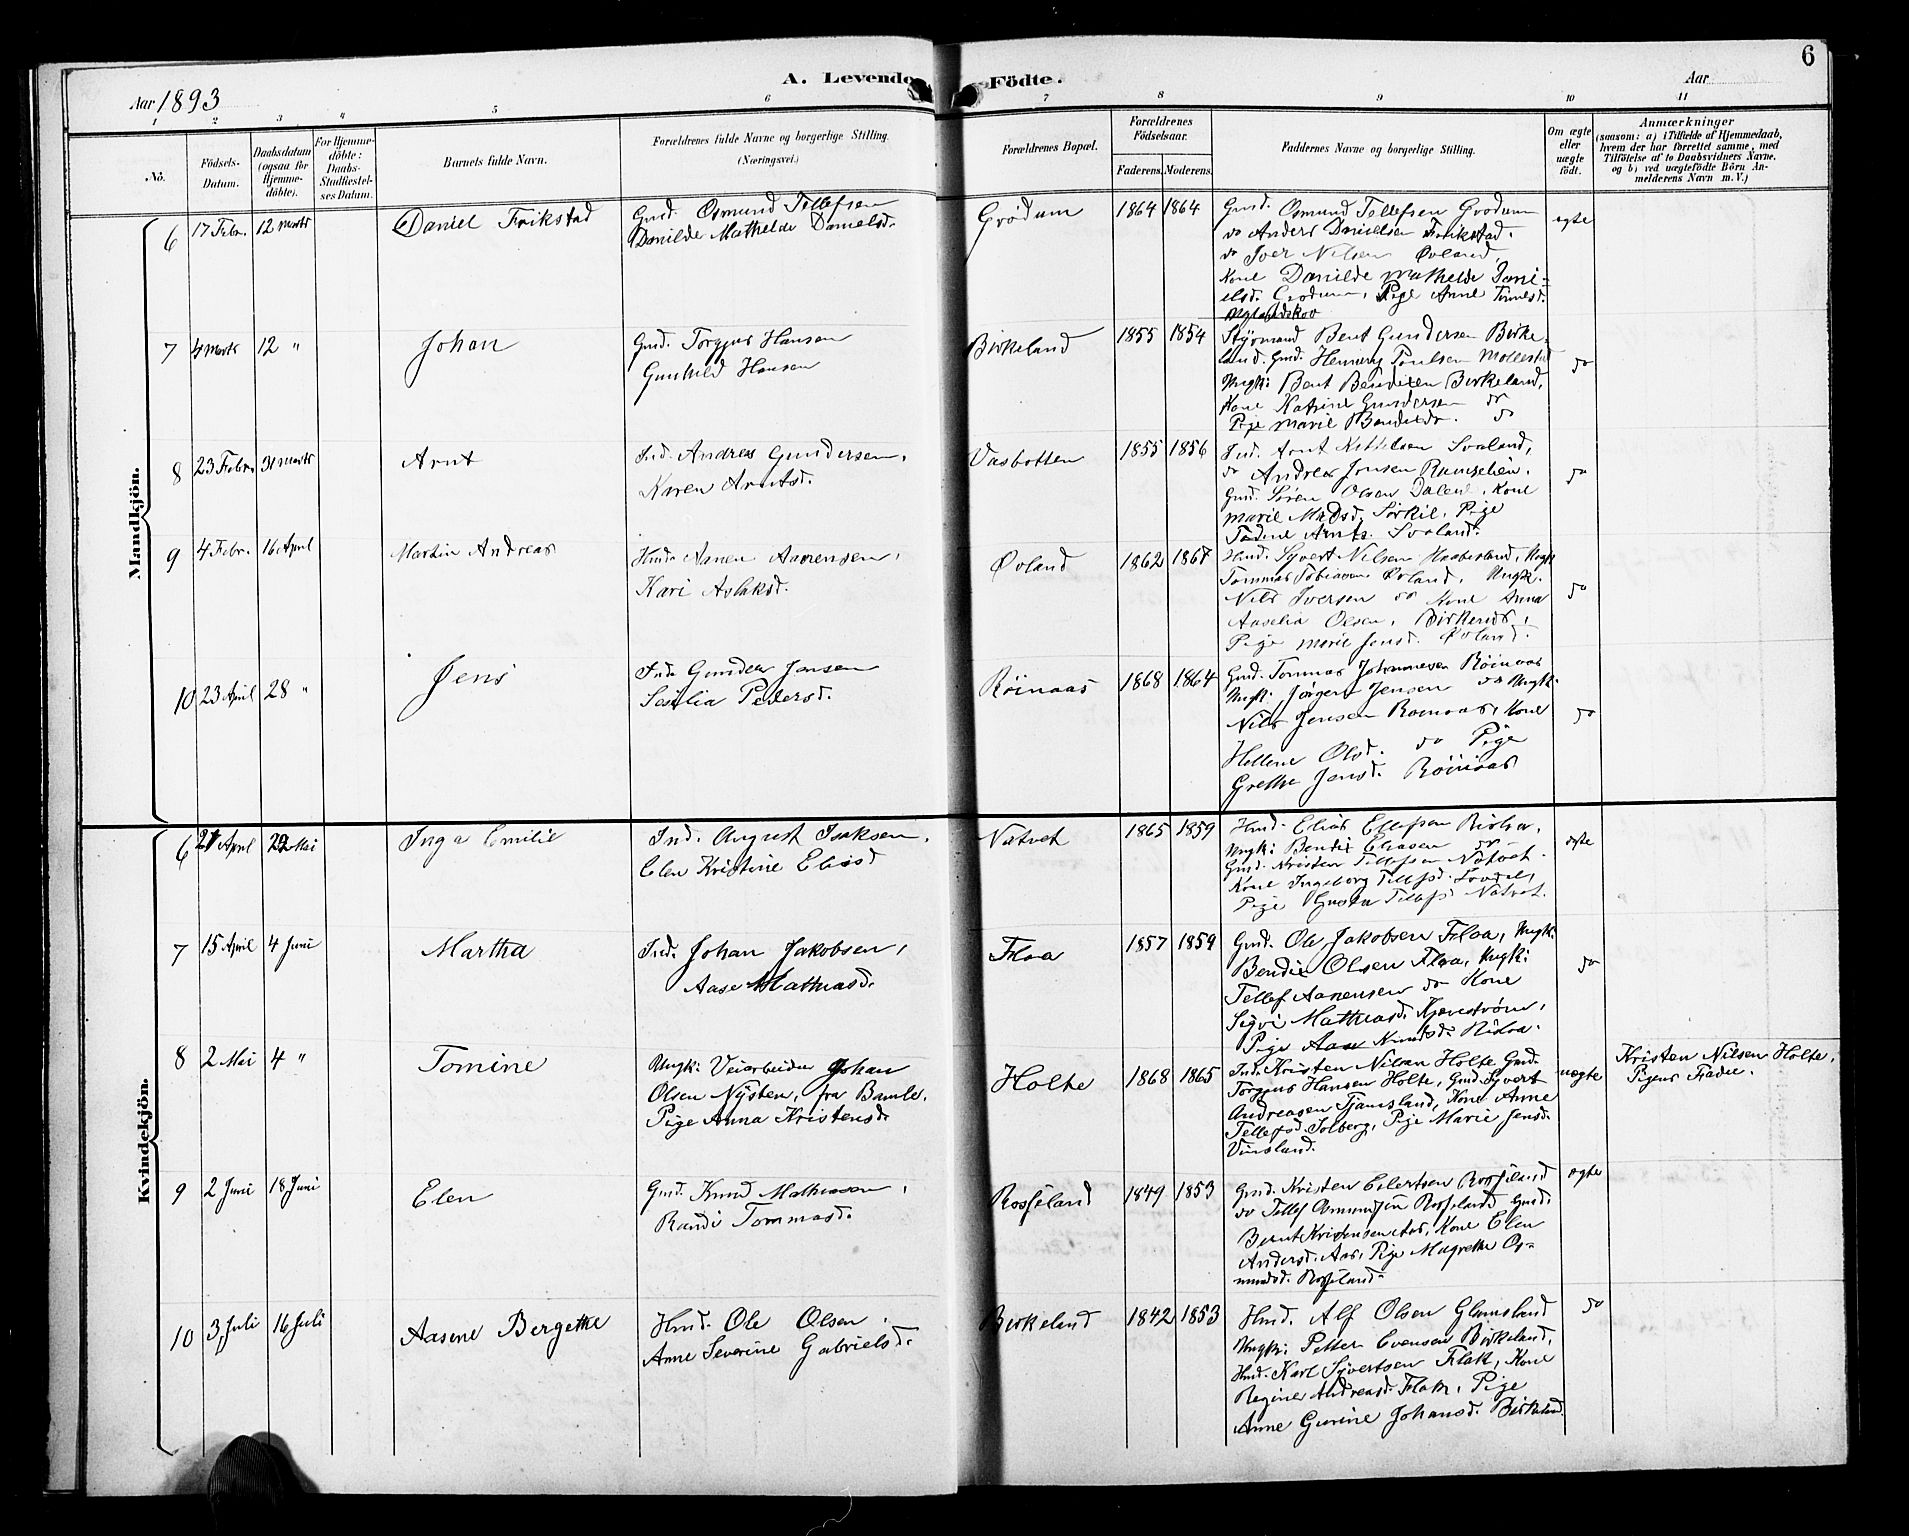 6
A. Levende Födte.
Aar 1893
Aar
1 2 3 4 5 6 7 8 9 10 11
No.
Födsels-Datum.
Daabsdatum (ogsaa for Hjemmedöbte).
For Hjemmedöbte: Daabs-Stadfæstelses Datum.
Barnets fulde Navn.
Forældrenes fulde Navne og borgerlige Stilling. (Næringsvei.)
Forældrenes Bopæl.
Forældrenes Födselsaar.
Faderens. Moderens.
Faddernes Navne og borgerlige Stilling.
Om ægte eller uægte födt.
Anmærkninger
(saasom: a) i Tilfælde af Hjemmedaab,
hvem der har forrettet samme, med
Tilföielse af to Daabsvidners Navne,
og b) ved uægtefödte Börn An-
melderens Navn m. V.)
Mandkjön.
6 17 Febr. 12 Marts Daniel Frikstad
Gmd. Osmund Tellefsen
Danilde Mathilde Danielsd.
Grödum 1864 1864
Gmd. Osmund Tellefsen Grödum
do Anders Danielsen Frikstad.
do Iver Nilsen Øvland,
Kone Danilde Mathilde Dani-
elsd. Grödum, Pige Anne
ægte
7 4 Marts 12 " Johan
Gmd. Torgjus Hansen
Gunhild Hansen
Birkeland 1855 1854
Styrmand Bent Gundersen Birke-
land. Gmd. Henrik Poulsen
Ungk: Bent Bendixen Birkeland,
Kone Katrine Gundersen do
Pige Marie do
do
8 23 Febr. 31 Marts Arnt
Ind. Andreas Gundersen,
Karen Arntsd.
Vasbotten 1855 1856
Ind. Arnt Kittelsen Svaland,
do Andreas Jensen
Gmd. Sören Olsen Dalen, Kone
Marie Madsd. Pige
Arnts. Svaland.
do
9 4 Febr. 16 April Martin Andreas
Hmd. Aanen Aanensen,
Kari Aslaksd.
Øvland 1862 1867
Hmd. Syvert Nilsen Ungk
Tommas Tobiasen Øvland, Ungk.
Nils Iversen do Kone Anna
Olsen,
Pige Marie Jensd. Øvland.
do
10 23 April 28 " Jens
Ind. Gunder Jensen
Sesilia Pedersd.
Röinaas 1868 1864
Gmd. Tommas Johannesen Röinaas
Ungk: Jørgen Jensen do Ungk:
Nils Jensen Röinaas, Kone
Hellene Olsd. do Pige
Grethe Jensd. Röinaas
do
Kvindekjön.
6 April Mai Inga Emilie
Ind. August Isaksen,
Elen Kristine Eliasd
Natvet 1865 1859
Hmd. Elias Ellefsen Risha,
Ungk: Bendix Eliasen do
Gmd. Kristen Tellefsen Natvet.
Kone Ingeborg Tellefsd.
Pige Gusta Tellefsd Natvet.
ægte
7 15 April 4 Juni Martha
Ind. Johan Jakobsen,
Aase Mathiasd.
Flaa 1857 1859
Gmd. Ole Jakobsen Flaa, Ungk:
Bendix Olsen Flaa, Ungk:
Tellef Aanensen do Kone
Sigvi Mathiasd.
Pige Aase Knudsd.
do
8 2 Mai 4 " Tomine
Ungk: Veiarbeider Johan
Olsen Nysten, fra Bamle,
Pige Anna Kristensd.
Holte 1868 1865
Ind. Kristen Nilsen Holte, Gmd.
Torgjus Hansen Holte, Gmd. Syvert
Andreasen Tjamsland, Kone Anne
Tellefsd. Solberg, Pige Marie Jensd.
Vinsland.
uægte
Kristen Nilsen Holte,
Pigens Fader.
9 2 Juni 18 Juni Elen
Gmd. Knud Mathiasen,
Randi Tommasd.
Rosseland 1849 1853
Gmd. Kristen Eilertsen Rosseland
do Tellef Osmundsen Rosseland Gmd:
Bernt Kristensen Aas, Kone Elen
Andersd. Aas, Pige Magrethe Os-
mundsd. Rosseland
ægte
10 3 Juli 16 Juli Aasene Bergethe
Hmd. Ole Olsen,
Anne Severine Gabrielsd.
Birkeland 1842 1853
Hmd. Alf Olsen Glamsland
Ungk: Petter Evensen Birkeland,
Hmd. Karl Syvertsen Flak, Kone
Regine Andreasd. Flak, Pige
Anne Gurine Johansd. Birkeland.
do